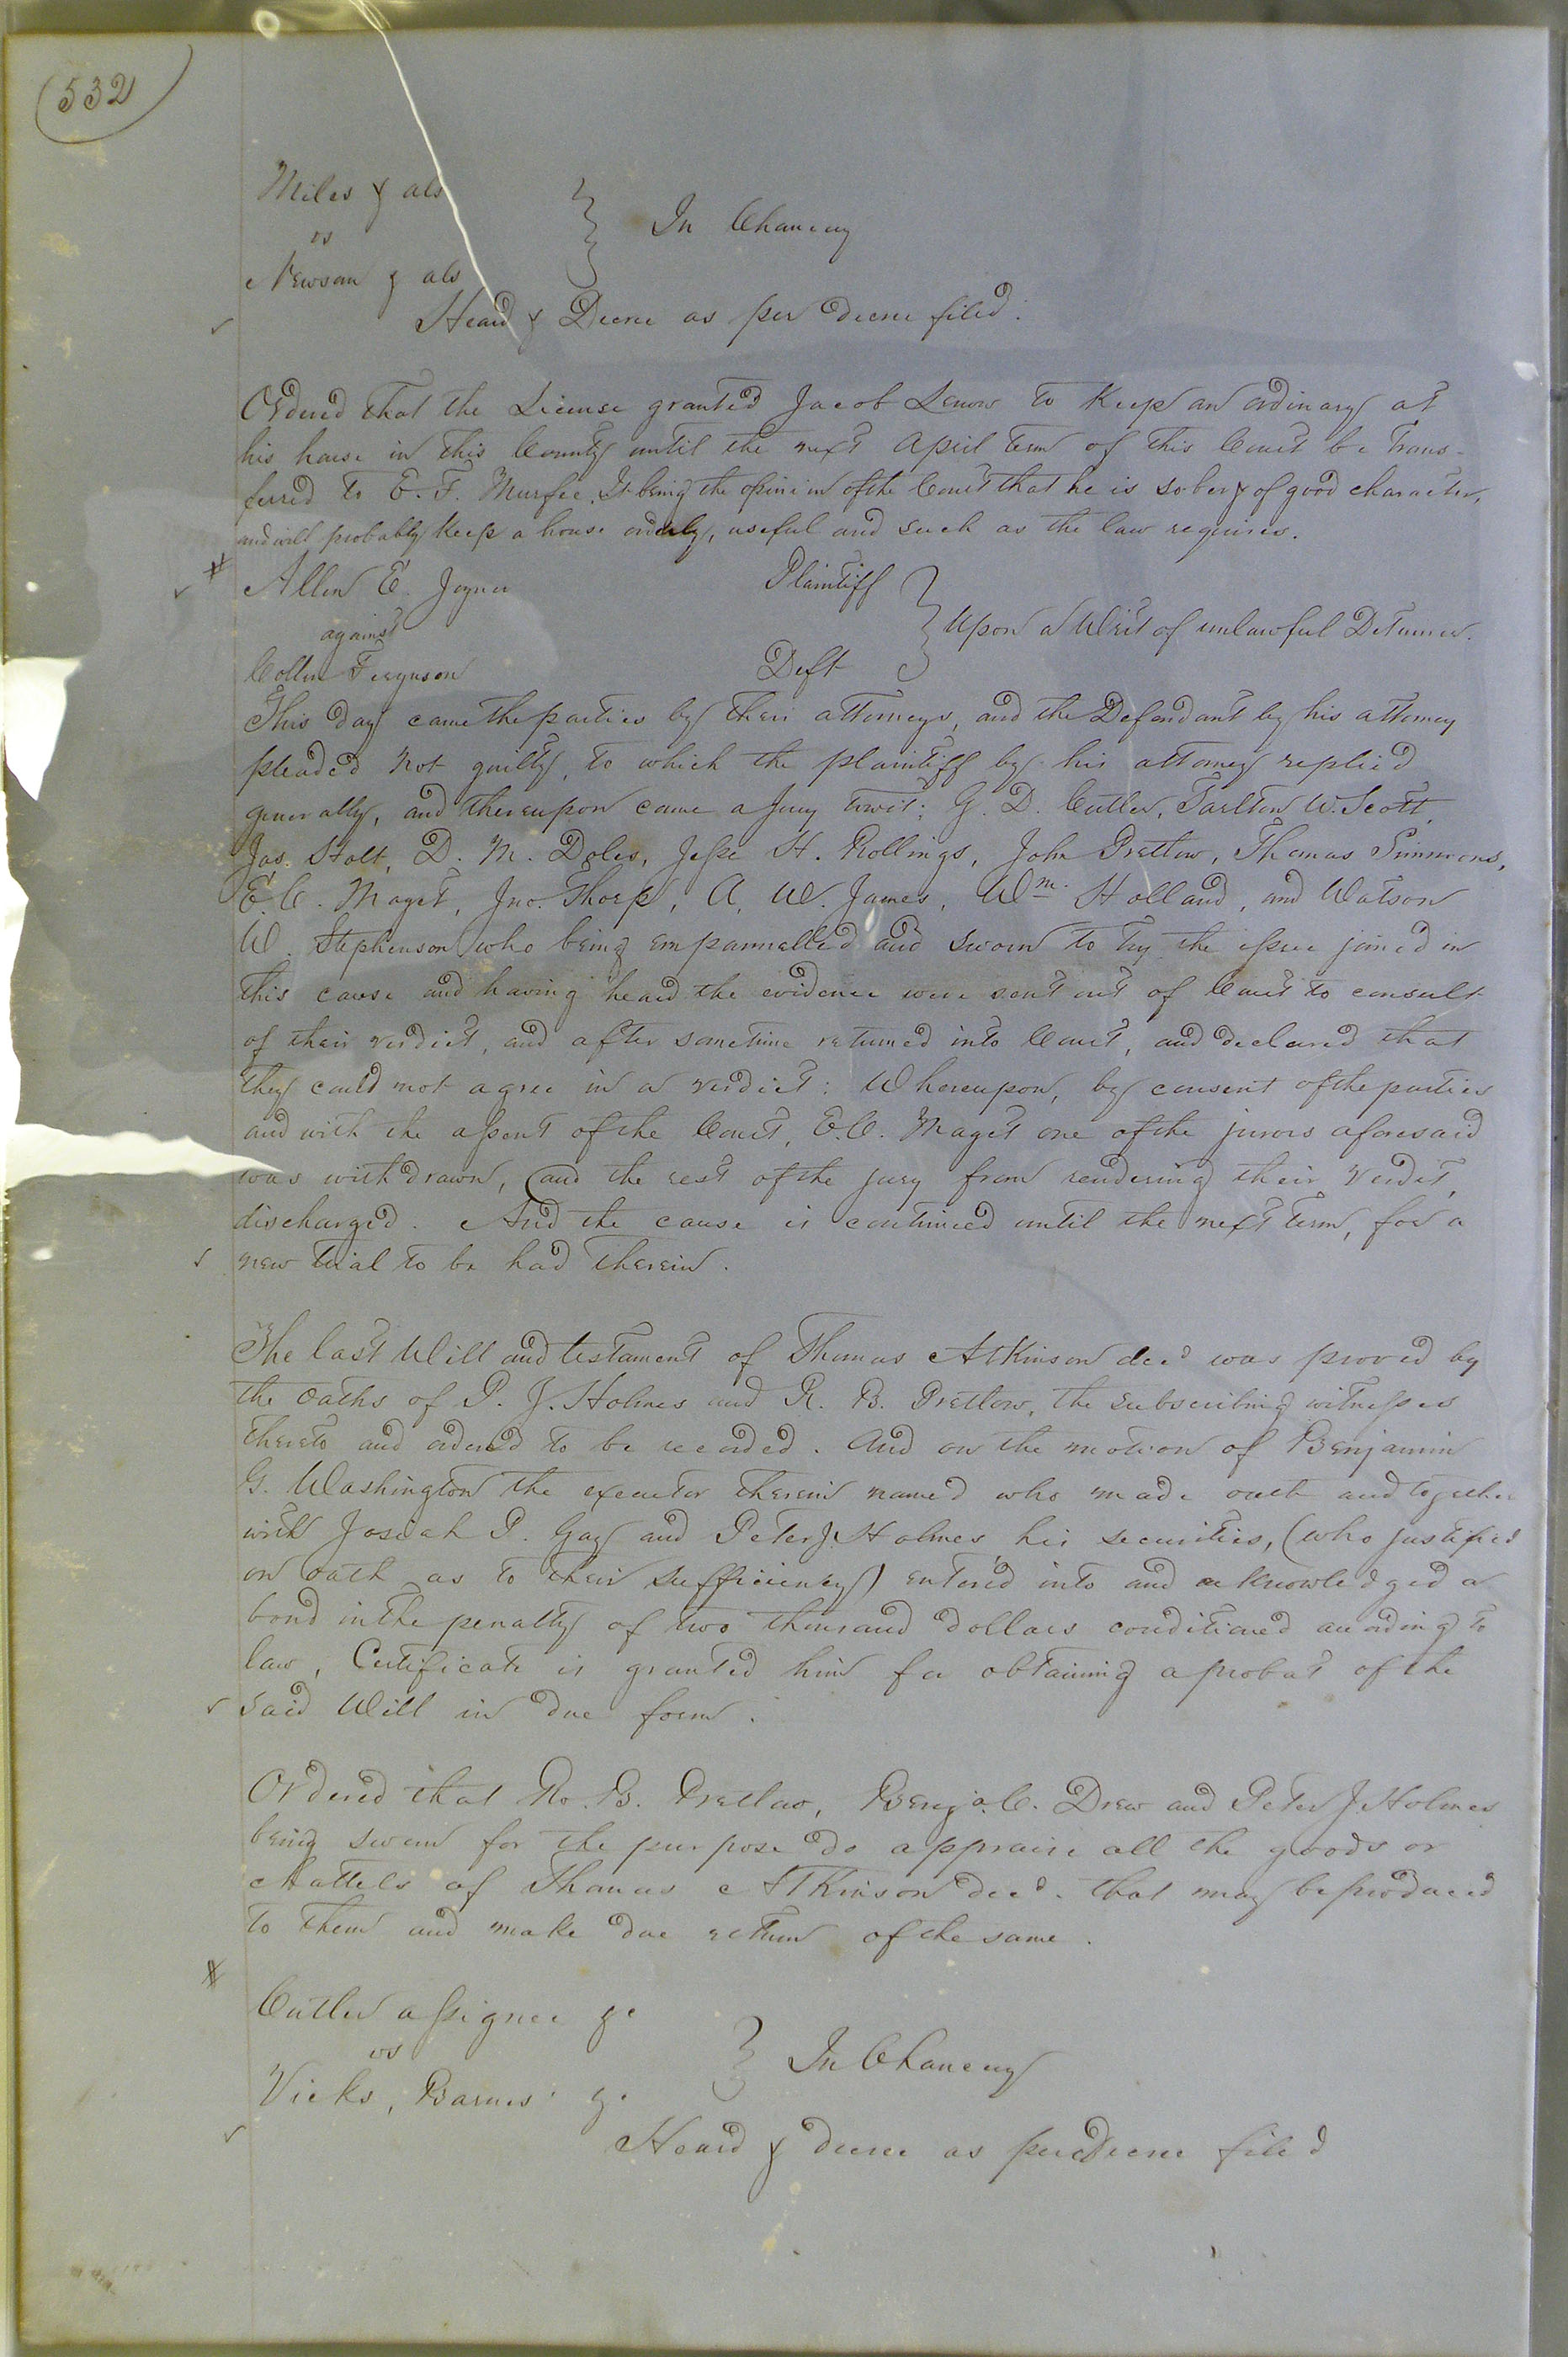 532
Miles & als
vs
Newsom & als
} In Chancery
Heard & Decree as per decree filed.
Ordered that the License granted Jacob Lenow to Keep an ordinary at
his house in this County until the next April term of this Court be trans-
ferred to E. F. Murfee, It being the opinion of the Court that he is sober & of good character,
and will probably keep a house orderly, useful and such as the law requires.
Allen E. Joyner Plaintiff
against
} Upon a Writ of unlawful Detainer.
Collin Ferguson Deft
This day came the parties by their attorneys, and the Defendant by his attorney
pleaded not guilty, to which the plaintiff by his attorney replied
generally, and thereupon came a Jury towit; G. D. Cutler, Tarlton W. Scott,
Jas. Holt, D. M. Doles, Jesse H. Rollings, John Pretlow, Thomas Simmons,
E. C. Maget, Jno. Thorp, A. W. James, Wm. Holland, and Watson
W. Stephenson who being empannelled and sworn to try the issue joined in
this cause and having heard the evidence were sent out of Court to consult
of their verdict, and after sometime returned into Court, and declared that
they could not agree in a verdict: Whereupon, by consent of the parties
and with the assent of the Court, E. C. Maget one of the jurors aforesaid
was withdrawn, and the rest of the jury from rendering their verdict,
discharged. And the cause is continued until the next term, for a
new trial to be had therein.
The last Will and testament of Thomas Atkinson decd was proved by
the oaths of P. J. Holmes and R. B. Pretlow, the subscribing witnesses
thereto and ordered to be recorded. And on the motion of Benjamin
G. Washington the executor therein named who made oath and together
with Josiah P. Gay and Peter J. Holmes his securities, (who justified
on oath as to their sufficiency) entered into and acknowledged a
bond in the penalty of two thousand dollars conditioned according to
law, Certificate is granted him for obtaining a probat of the
said Will in due form.
Ordered that Ro. B. Pretlow, Benja. C. Drew and Peter J Holmes
being sworn for the purpose do appraise all the goods or
chattels of Thomas Atkinson decd. that may be produced
to them and make due return of the same.
Cutler assignee &c
vs
} In Chancery
Vicks, Barnes &c
Heard & decree as per Decree filed